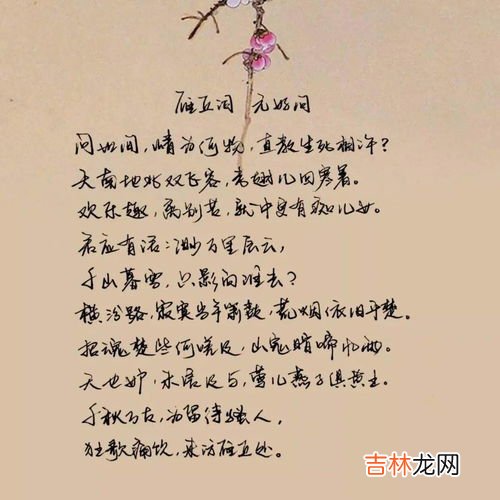 雁丘词 元好问
问世间,情为何物,直教生死相许?
天南地北双飞客,老翅几回寒暑。
欢乐趣,离别苦,就中更有痴儿女。
君应有语:渺万里层云,
千山暮雪,只影向谁去?
横汾路,寂寞当年箫鼓,荒烟依旧平楚。
招魂楚些何嗟及,山鬼暗啼风雨。
天也妒,未信与,莺儿燕子俱黄土。
千秋万古,为留待骚人,
狂歌痛饮,来访雁丘处。
吉林龙网